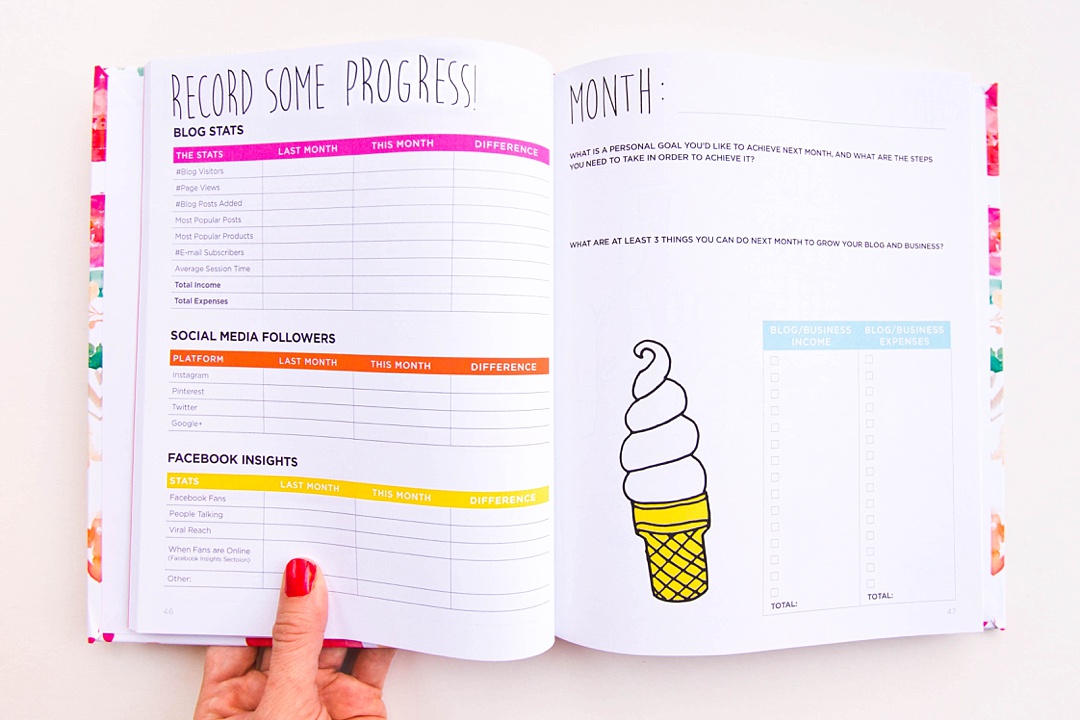 RECORD SOME PROGRESS!
BLOG STATS
THE STATS LAST MONTH THIS MONTH DIFFERENCE
#Blog Visitors
#Page Views
#Blog Posts Added
Most Popular Posts
Most Popular Products
#E-mail Subscribers
Average Session Time
Total Income
Total Expenses
SOCIAL MEDIA FOLLOWERS
PLATFORM LAST MONTH THIS MONTH DIFFERENCE
Instagram
Pinterest
Twitter
Google+
FACEBOOK INSIGHTS
STATS LAST MONTH THIS MONTH DIFFERENCE
Facebook Fans
People Talking
Viral Reach
When Fans are Online
(Facebook Insights Sectoion)
Other:
46
MONTH:
WHAT IS A PERSONAL GOAL YOU'D LIKE TO ACHIEVE NEXT MONTH, AND WHAT ARE THE STEPS
YOU NEED TO TAKE IN ORDER TO ACHIEVE IT?
WHAT ARE AT LEAST 3 THINGS YOU CAN DO NEXT MONTH TO GROW YOUR BLOG AND BUSINESS?
BLOG/BUSINESS BLOG/BUSINESS
INCOME EXPENSES
TOTAL: TOTAL:
47